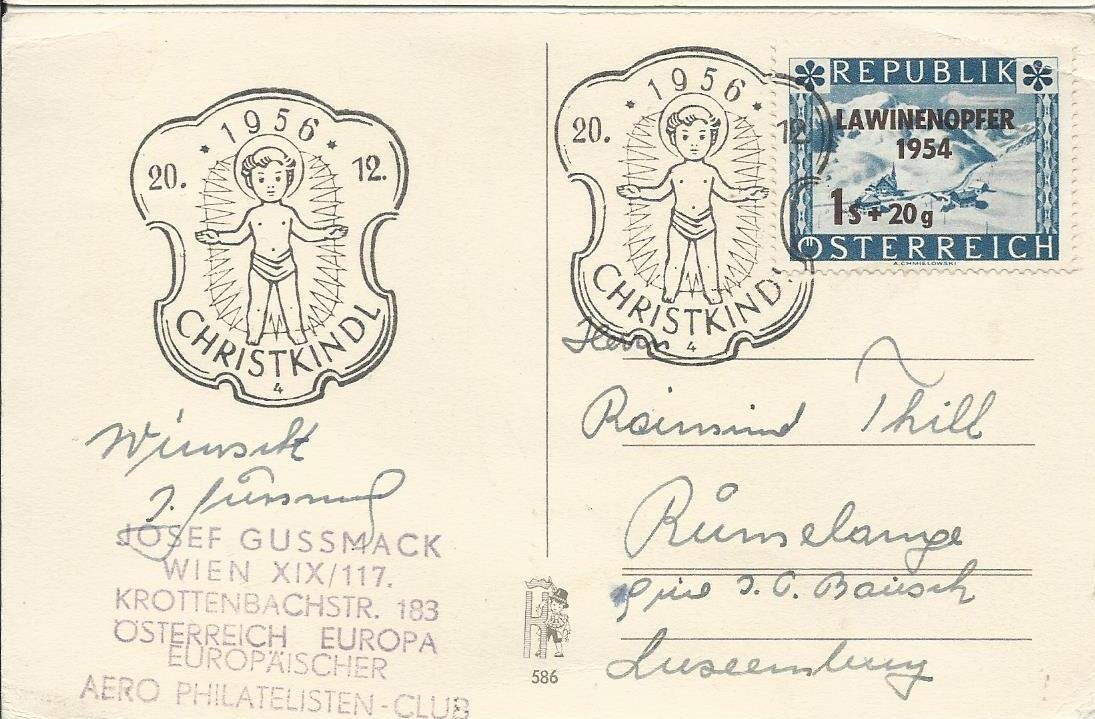 1956
20. 12.
CHRISTKINDL
4
Wünscht
J. Gussmack
JOSEF GUSSMACK
WIEN XIX/117.
KROTTENBACHSTR. 183
ÖSTERREICH EUROPA
EUROPÄISCHER
AERO PHILATELISTEN-CLUB
586
1956
20. 12
CHRISTKINDL
4
REPUBLIK
LAWINENOPFER
1954
1s + 20g
ÖSTERREICH
A. CHMIELOWSKI
Herrn
Thill
Rümelange
J. O. Bausch
Luxemburg